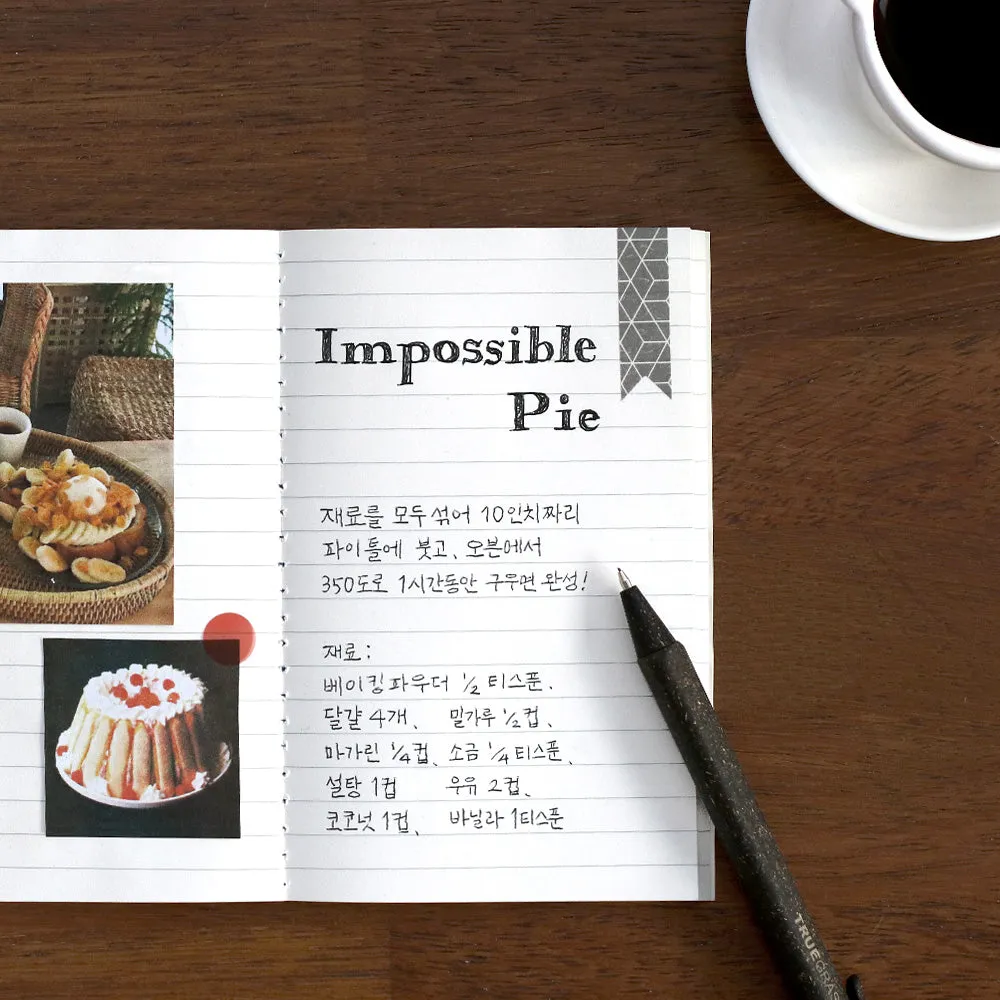 Impossible
Pie
재료를 모두 섞어 10인치짜리
파이틀에 붓고, 오븐에서
350도로 1시간동안 구우면 완성!
재료:
베이킹파우더 ½ 티스푼,
달걀 4개, 밀가루 ½컵,
마가린 ¼컵, 소금 ¼티스푼,
설탕 1컵 우유 2컵,
코코넛 1컵, 바닐라 1티스푼
TRUEGRAS